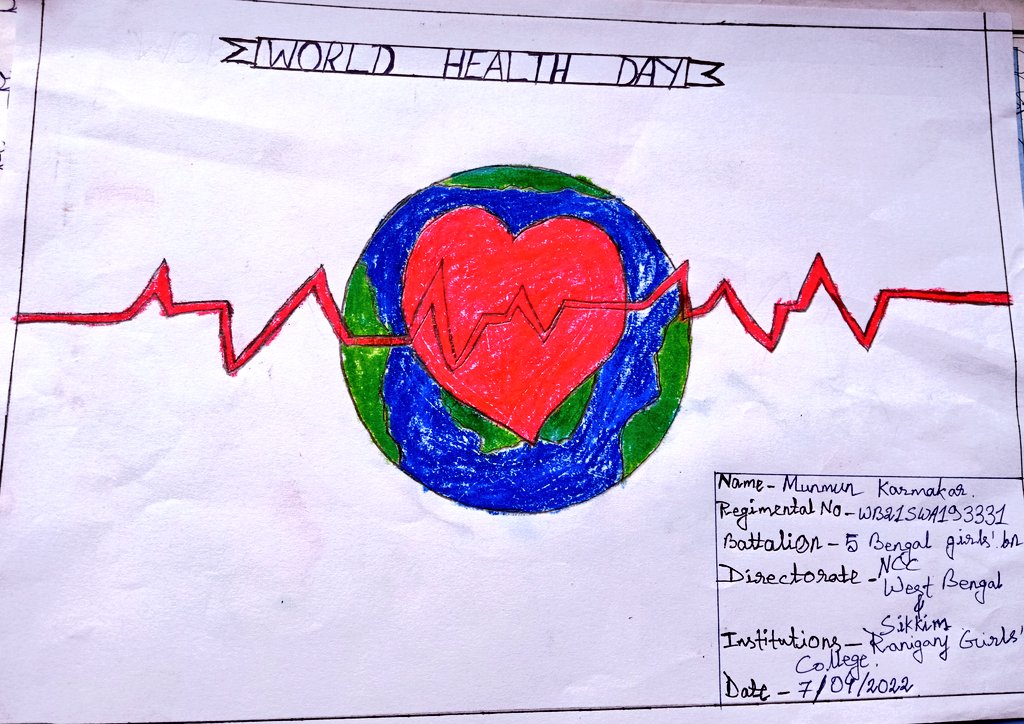 WORLD HEALTH DAY
Name - Munmun Karmakar.
Regimental No - WB21SWA193331
Battalion - 5 Bengal girls' bn
Directorate - NCC
West Bengal
&
Sikkim
Institutions - Raniganj Girls'
College.
Date - 7/04/2022